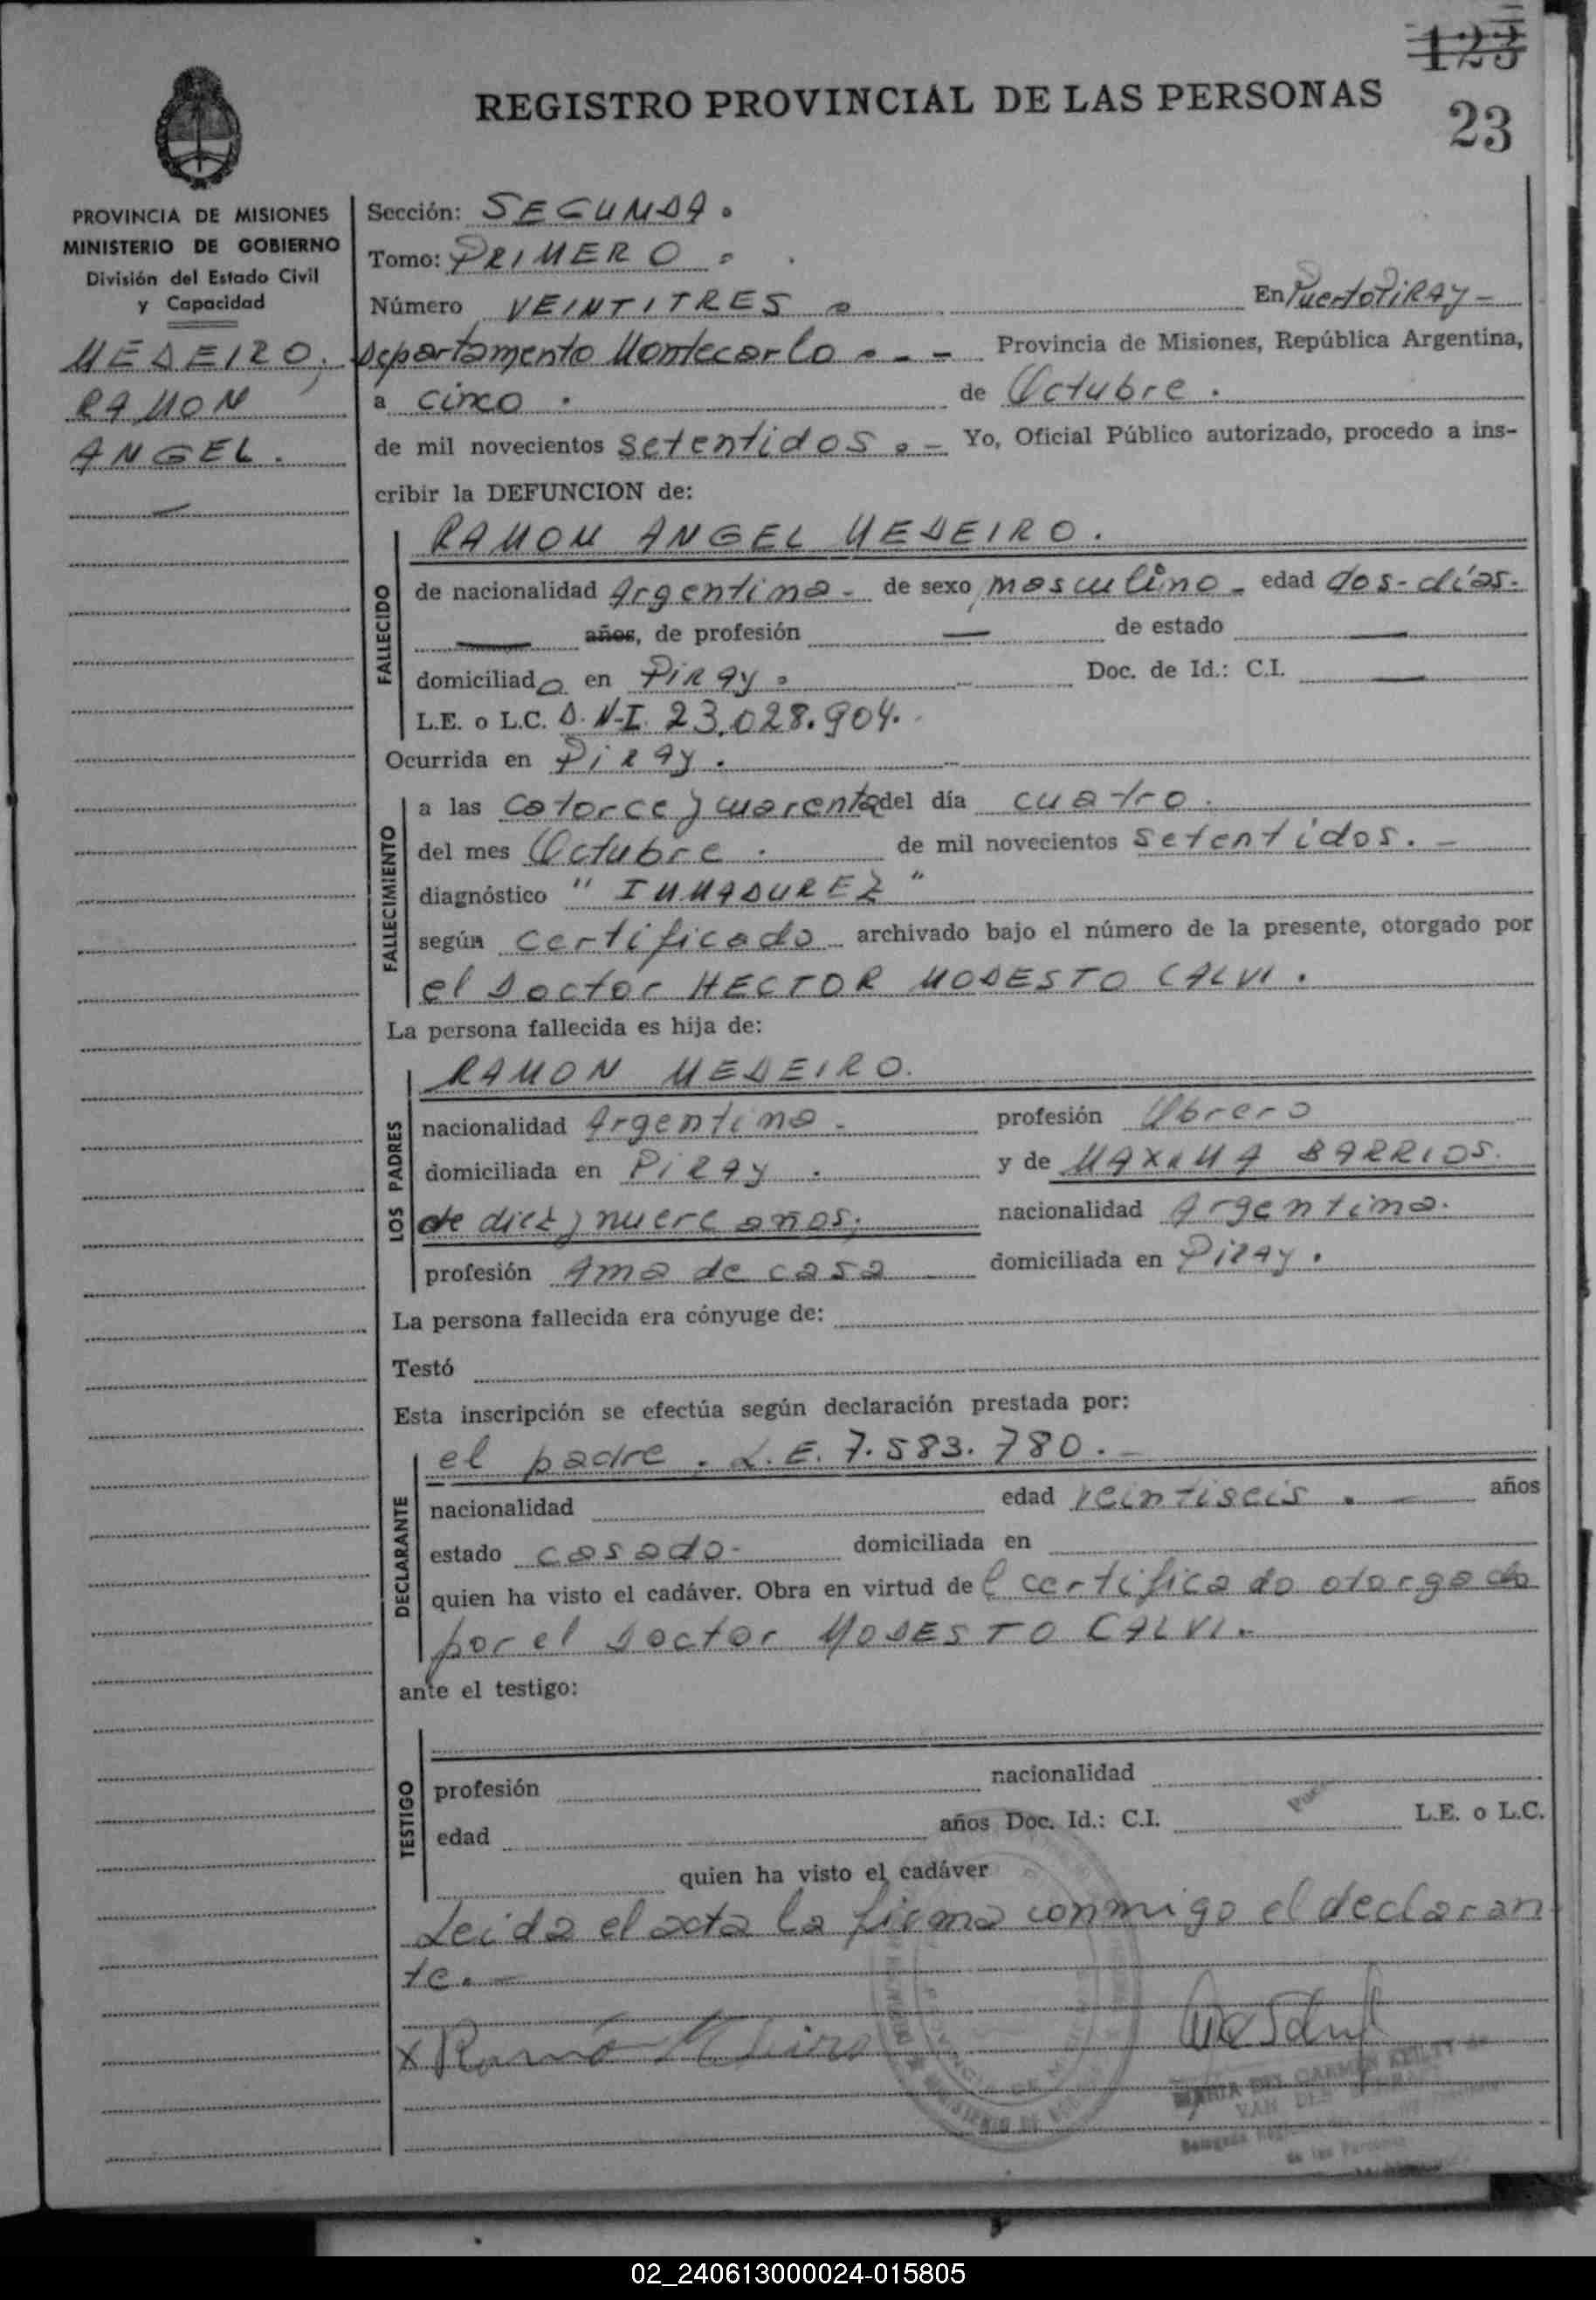 123
REGISTRO PROVINCIAL DE LAS PERSONAS
23
PROVINCIA DE MISIONES
MINISTERIO DE GOBIERNO
División del Estado Civil
y Capacidad
MEDEIRO,
RAMON
ANGEL.
Sección: SEGUNDA.
Tomo: PRIMERO.
Número VEINTITRES. En Puerto PiRAY-
Departamento Montecarlo.-- Provincia de Misiones, República Argentina,
a cinco. de Octubre.
de mil novecientos setentidos.- Yo, Oficial Público autorizado, procedo a ins-
cribir la DEFUNCION de:
RAMON ANGEL MEDEIRO.
FALLECIDO
de nacionalidad Argentina- de sexo masculino- edad dos-días-
años, de profesión — de estado —
domiciliado en PiRAY. Doc. de Id.: C.I. —
L.E. o L.C. D.N-I. 23.028.904.
Ocurrida en PiRAY.
FALLECIMIENTO
a las catorce y cuarenta del día cuatro.
del mes Octubre. de mil novecientos setentidos.-
diagnóstico "INMADUREZ"
según certificado- archivado bajo el número de la presente, otorgado por
el Doctor HECTOR MODESTO CALVI.
La persona fallecida es hija de:
RAMON MEDEIRO.
LOS PADRES
nacionalidad Argentina- profesión Obrero
domiciliada en PiRAY. y de MAXIMA BARRIOS.
de diez y nueve años. nacionalidad Argentina.
profesión Ama de casa domiciliada en PiRAY.
La persona fallecida era cónyuge de:
Testó
Esta inscripción se efectúa según declaración prestada por:
el padre. L.E. 7.583.780.-
DECLARANTE
nacionalidad edad veintiseis.- años
estado casado- domiciliada en
quien ha visto el cadáver. Obra en virtud del certificado otorgado
por el Doctor MODESTO CALVI.
ante el testigo:
TESTIGO
profesión nacionalidad
edad años Doc. Id.: C.I. L.E. o L.C.
quien ha visto el cadáver
Leida el acta la firma conmigo el declaran
te.-
x Ramón
MARIA DEL CARMEN
VAN DER
de las Personas
02_240613000024-015805